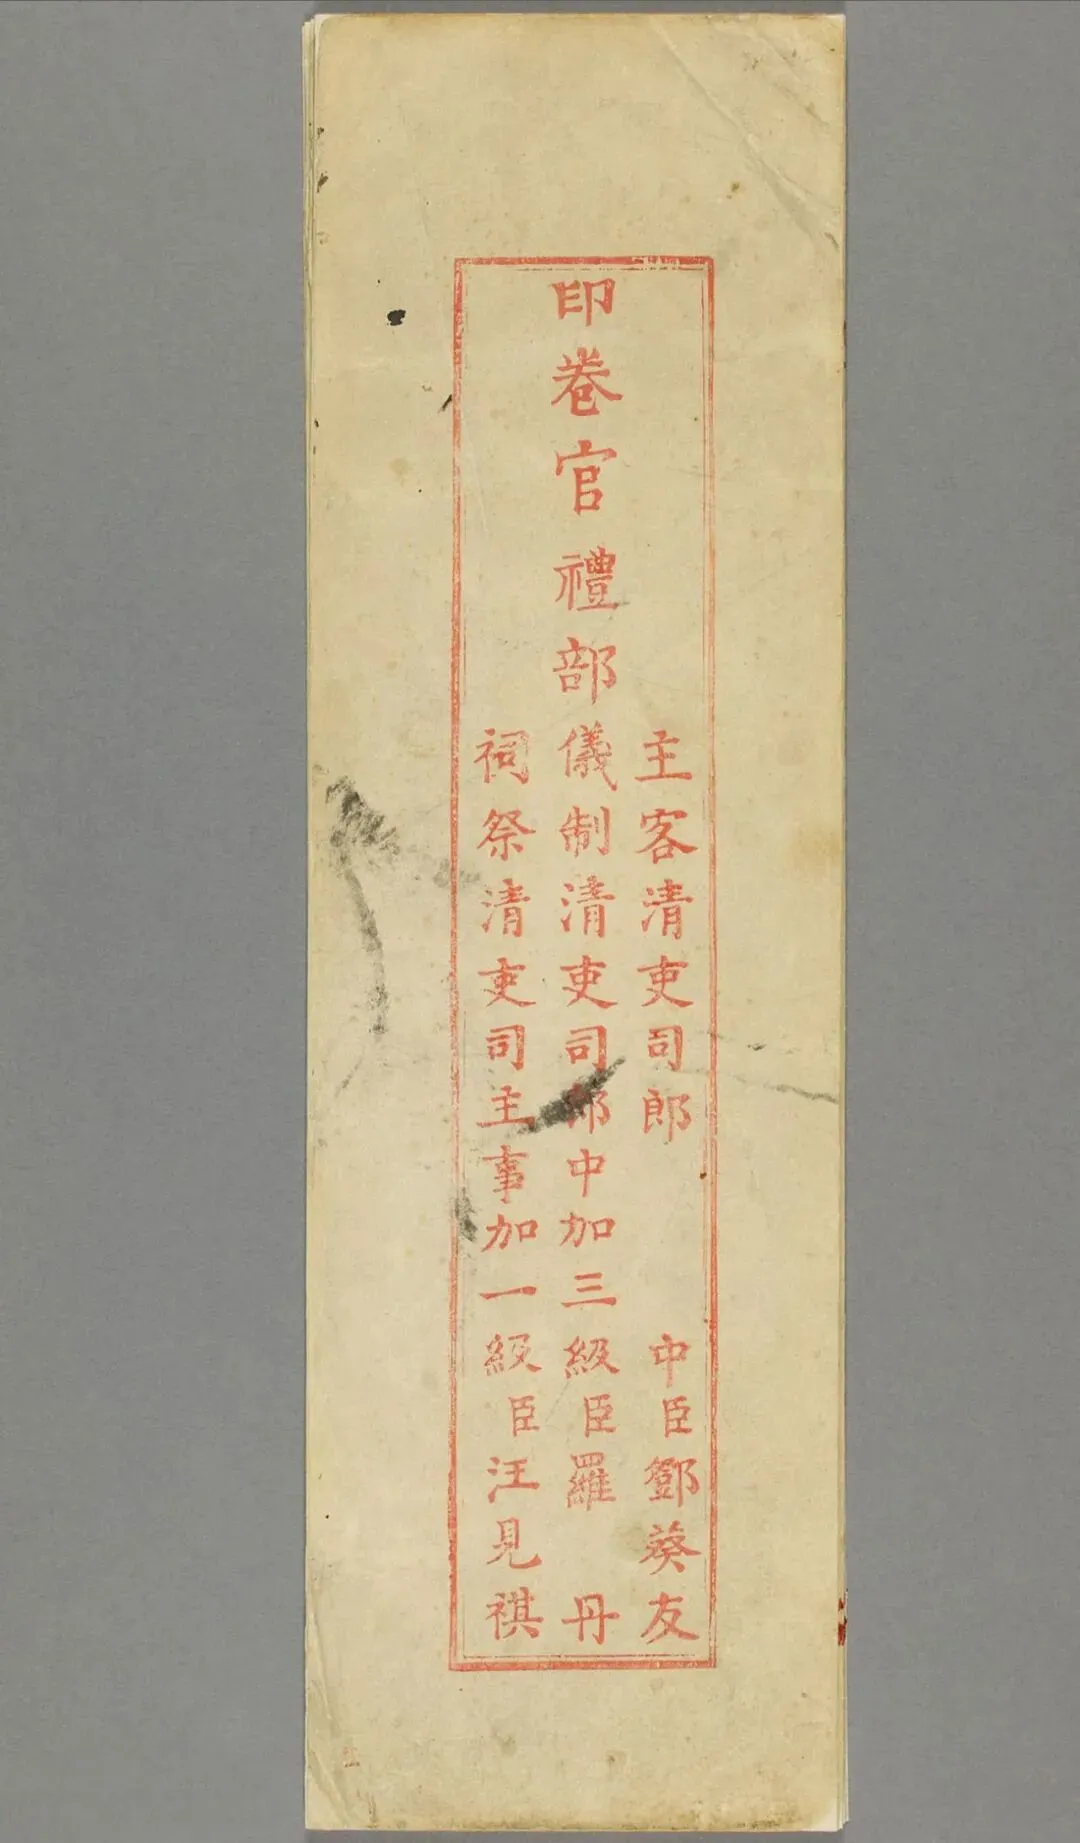 印卷官禮部
主客清吏司郎中臣鄧葵友
儀制清吏司郎中加三級臣羅丹
祠祭清吏司主事加一級臣汪見祺